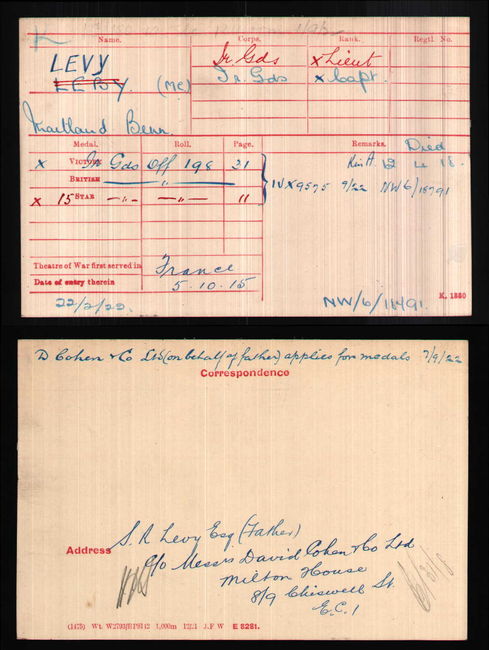 Name. Corps. Rank. Regtl. No.
LEVY Ir. Gds x Lieut
(MC) Ir. Gds x Capt.
Maitland Benn
Medal. Roll. Page. Remarks. Died
x VICTORY Ir Gds Off 198 21 4 18.
BRITISH — " — IVX9575 9/22 NW6/18791
x 15 STAR — " — — " — 11
Theatre of War first served in France
Date of entry therein 5.10.15
22/2/22. NW/6/11491. K. 1380
D Cohen & Co Ltd (on behalf of father) applies for medals 7/9/22
Correspondence
S. R Levy Esq (Father)
Address c/o Messrs David Cohen & Co Ltd
Milton House
8/9 Chiswell St.
E.C.1
(1475) Wt. W2793/RP9142 1,000m 12/21 J.F W E 8281.